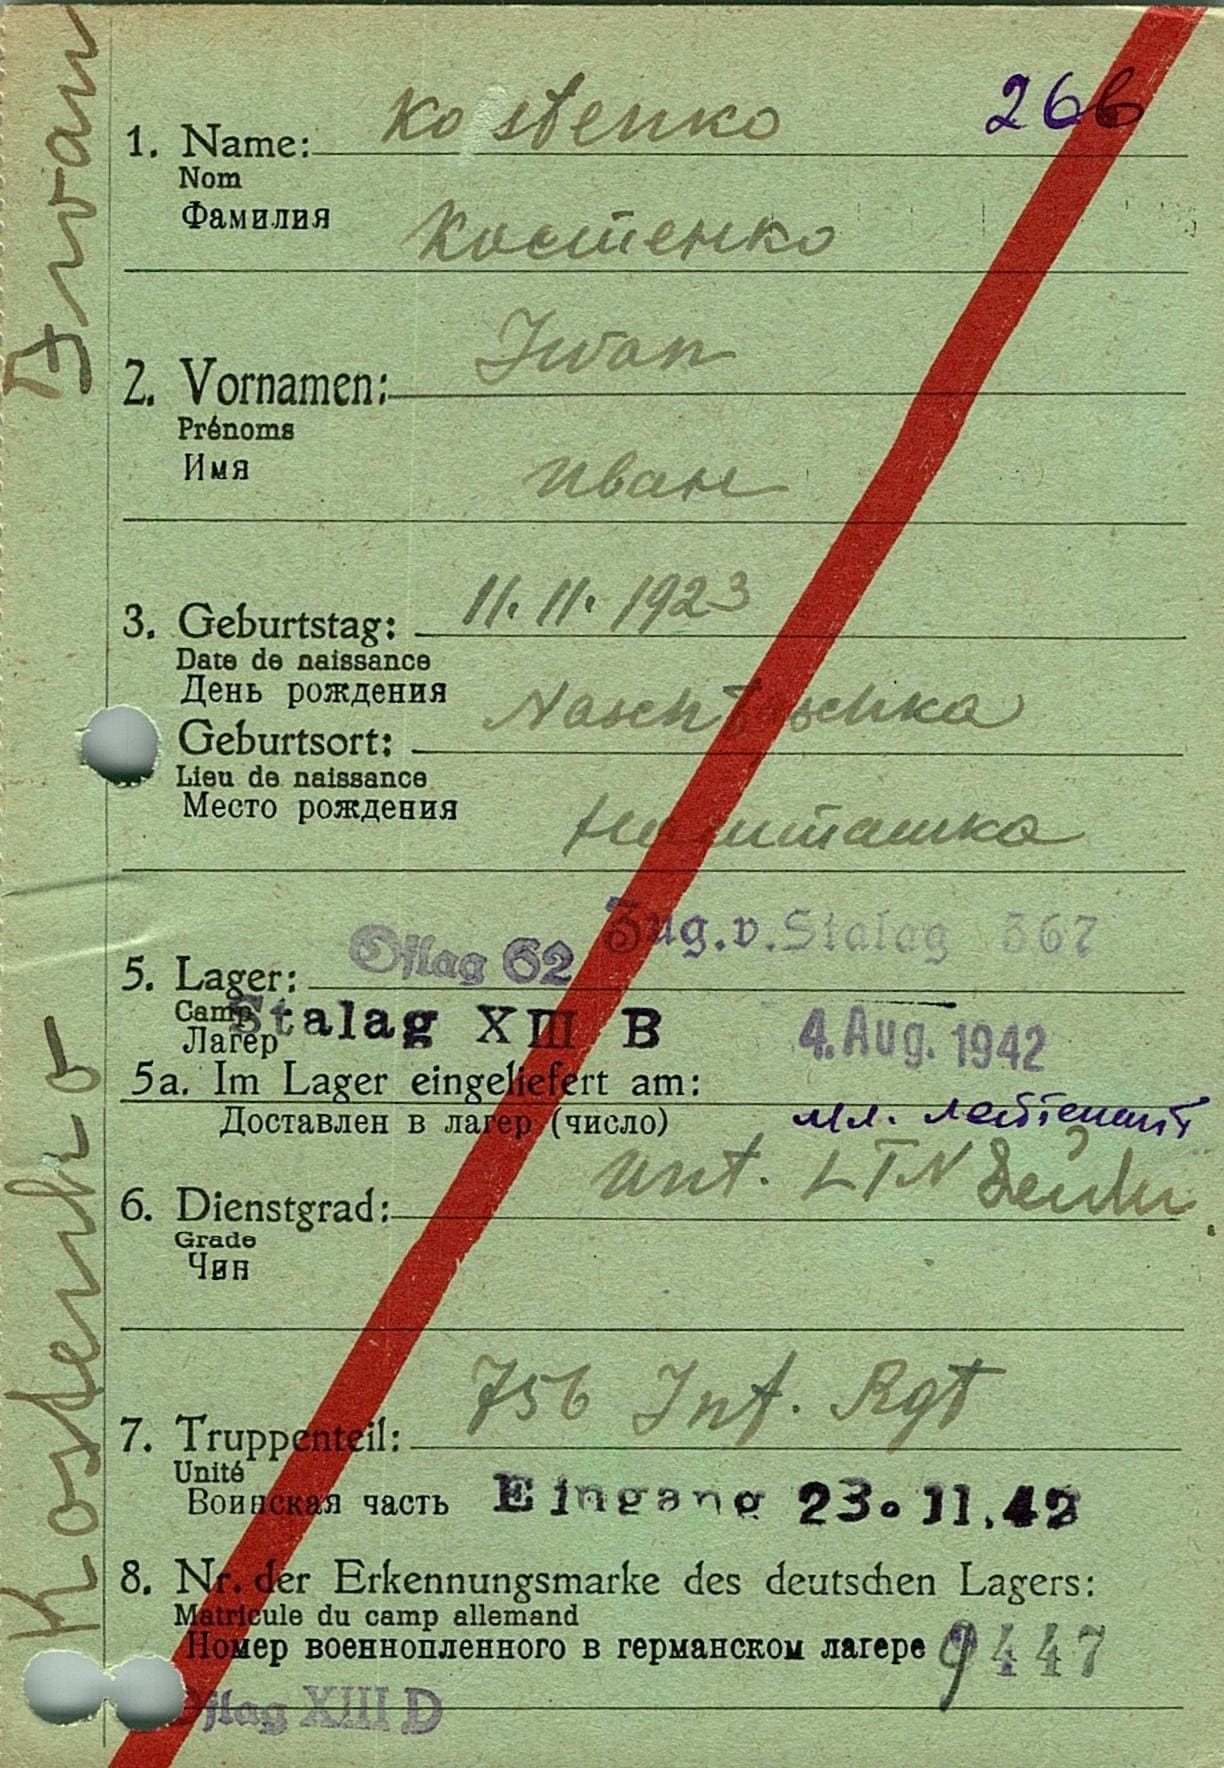 Kostenko Iwan
266
1. Name: Kostenko
Nom
Фамилия Костенко
2. Vornamen: Iwan
Prénoms
Имя Иван
3. Geburtstag: 11.11.1923
Date de naissance
День рождения
Geburtsort: Naschtaschka
Lieu de naissance
Место рождения Нашташка
Oflag 62 Zug.v.Stalag 367
5. Lager:
Camp
Stalag XIII B 4. Aug. 1942
Лагер
5a. Im Lager eingeliefert am:
Доставлен в лагер (число) мл. лейтенант
6. Dienstgrad: Unt. LTN
Grade
Чин
7. Truppenteil: 756 Inf. Rgt
Unité
Воинская часть Eingang 23.11.42
8. Nr. der Erkennungsmarke des deutschen Lagers:
Matricule du camp allemand
Номер военнопленного в германском лагере 9447
Oflag XIII D